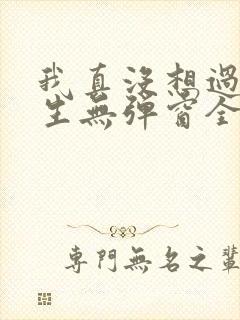 我真没想過
生無彈窗全
專門無名之輩